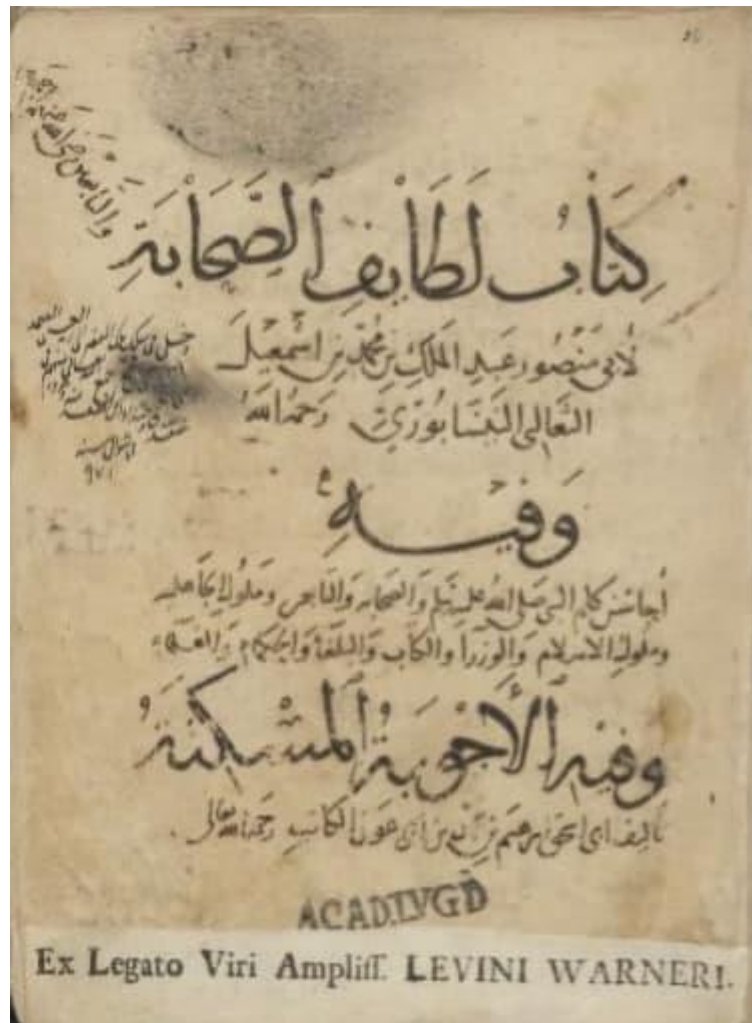 والتابعين رضي الله عنهم
كِتَابُ لَطَايِفِ الصَّحَابَةِ
لأبي مَنصُور عَبدِ المَلِكِ بن مُحمَّد بن اسمعيل
الثعالبي النيسابوري رحمه الله
وَفِيهِ
أحاسن كلم النبي صلى الله عليه وسلم والصحابه والتابعين وملوك الجاهليه
وملوك الاسلام والوزرا والكتاب والبلغا والحكماء والعلماء
وفيه الأجوبة المسكتة
تاليف ابي اسحق ابرهيم بن ابي عون الكاتب رحمه الله تعالى
ACAD. LVGD
Ex Legato Viri Ampliss. LEVINI WARNERI.